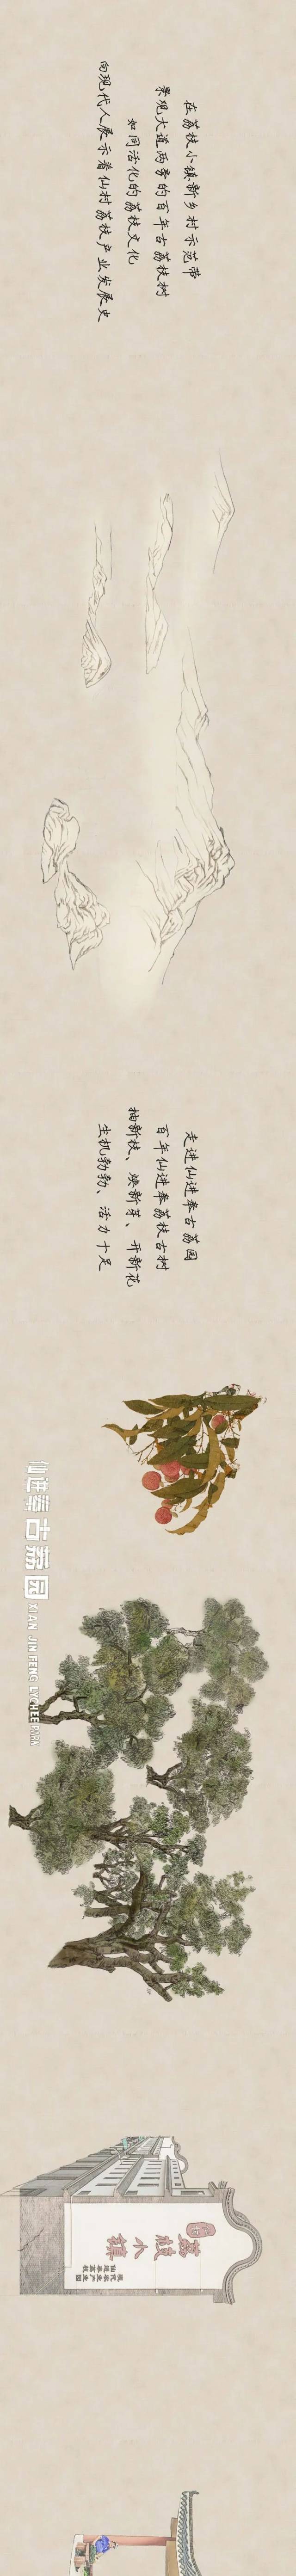 在荔枝小镇新乡村示范带
景观大道两旁的百年古荔枝树
如同活化的荔枝文化
向现代人展示着仙村荔枝产业发展史
走进仙进奉古荔园
百年仙进奉荔枝古树
抽新枝、焕新芽、开新花
生机勃勃、活力十足
仙进奉古荔园
XIAN JIN FENG LYCHEE PARK
荔枝小镇
仙进奉荔枝
现代农业产业园